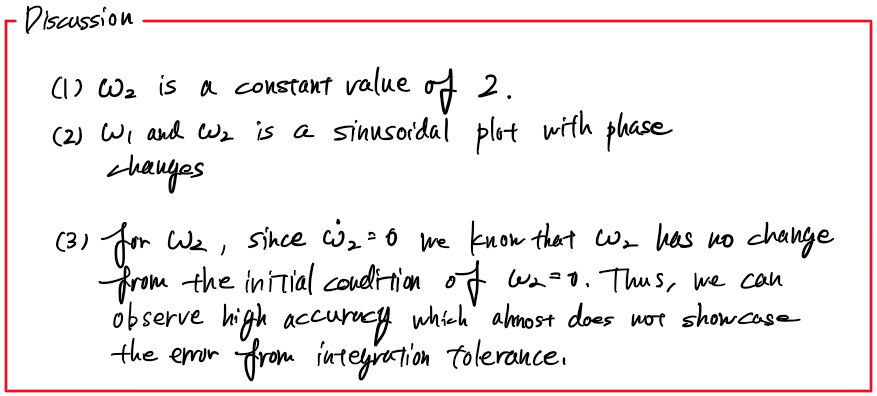 Discussion
(1) ω₂ is a constant value of 2.
(2) ω₁ and ω₂ is a sinusoidal plot with phase
changes
(3) for ω₂, since ω̇₂=0 we know that ω₂ has no change
from the initial condition of ω₂=0. Thus, we can
observe high accuracy which almost does not showcase
the error from integration tolerance.